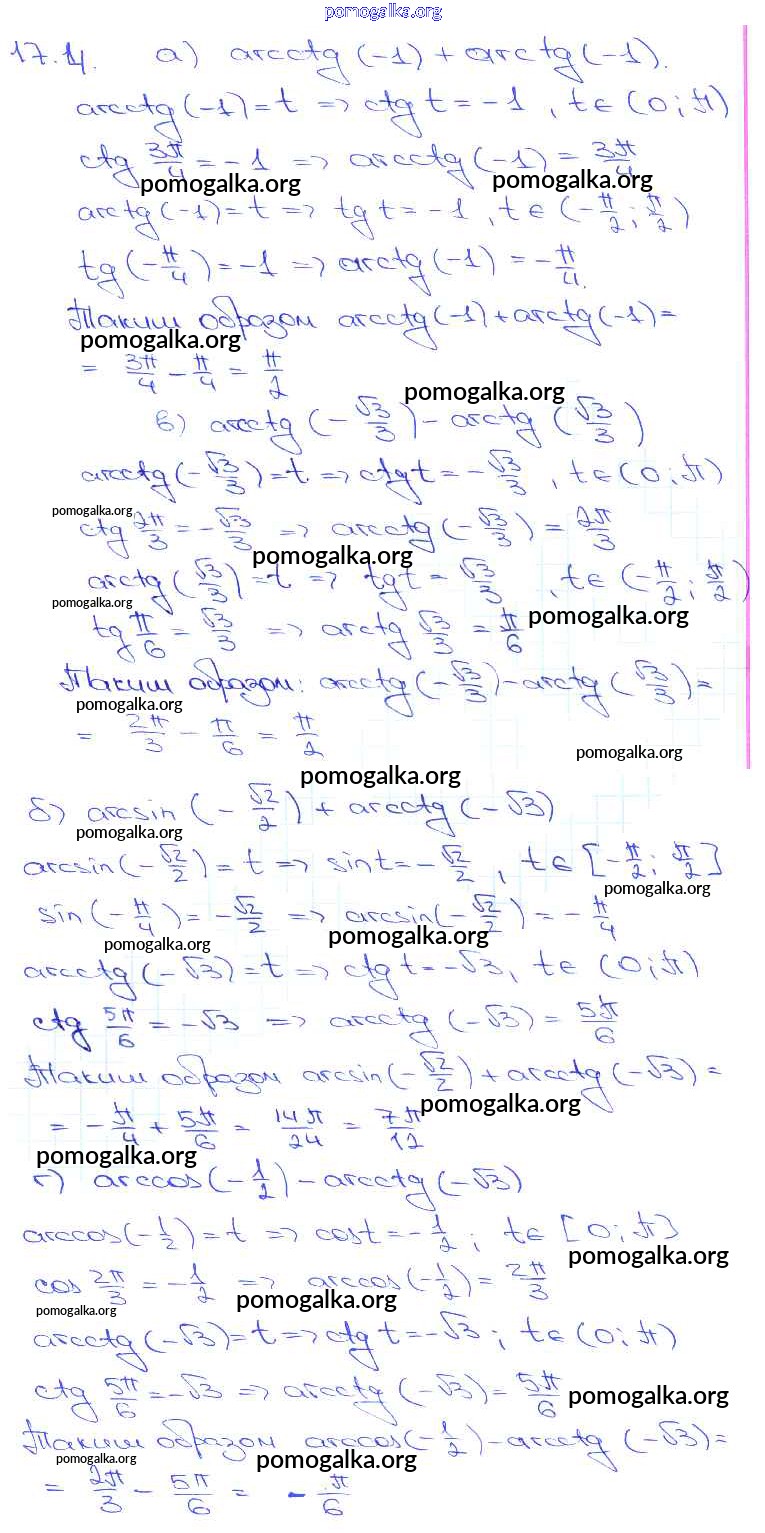 pomogalka.org
17.14. а) arcctg(-1) + arctg(-1).
arcctg(-1) = t => ctg t = -1, t ∈ (0; π)
ctg 3π/4 = -1 => arcctg(-1) = 3π/4
pomogalka.org pomogalka.org
arctg(-1) = t => tg t = -1, t ∈ (-π/2; π/2)
tg(-π/4) = -1 => arctg(-1) = -π/4.
Таким образом arcctg(-1) + arctg(-1) =
pomogalka.org
= 3π/4 - π/4 = π/2
pomogalka.org
в) arcctg(-√3/3) - arctg(√3/3)
arcctg(-√3/3) = t. => ctg t = -√3/3, t ∈ (0; π)
pomogalka.org
ctg 2π/3 = -√3/3 => arcctg(-√3/3) = 2π/3
pomogalka.org
arctg(√3/3) = t => tg t = √3/3, t ∈ (-π/2; π/2)
pomogalka.org pomogalka.org
tg π/6 = √3/3 => arctg √3/3 = π/6
Таким образом: arcctg(-√3/3) - arctg(√3/3) =
pomogalka.org
= 2π/3 - π/6 = π/2
pomogalka.org
pomogalka.org
б) arcsin(-√2/2) + arcctg(-√3)
pomogalka.org
arcsin(-√2/2) = t => sin t = -√2/2, t ∈ [-π/2; π/2]
pomogalka.org
sin(-π/4) = -√2/2 => arcsin(-√2/2) = -π/4
pomogalka.org pomogalka.org
arcctg(-√3) = t => ctg t = -√3, t ∈ (0; π)
ctg 5π/6 = -√3 => arcctg(-√3) = 5π/6
Таким образом arcsin(-√2/2) + arcctg(-√3) =
pomogalka.org
= -π/4 + 5π/6 = 14π/24 = 7π/12
pomogalka.org
г) arccos(-1/2) - arcctg(-√3)
arccos(-1/2) = t => cos t = -1/2; t ∈ [0; π]
pomogalka.org
cos 2π/3 = -1/2 => arccos(-1/2) = 2π/3
pomogalka.org pomogalka.org
arcctg(-√3) = t => ctg t = -√3; t ∈ (0; π)
ctg 5π/6 = -√3 => arcctg(-√3) = 5π/6
pomogalka.org
Таким образом arccos(-1/2) - arcctg(-√3) =
pomogalka.org pomogalka.org
= 2π/3 - 5π/6 = -π/6